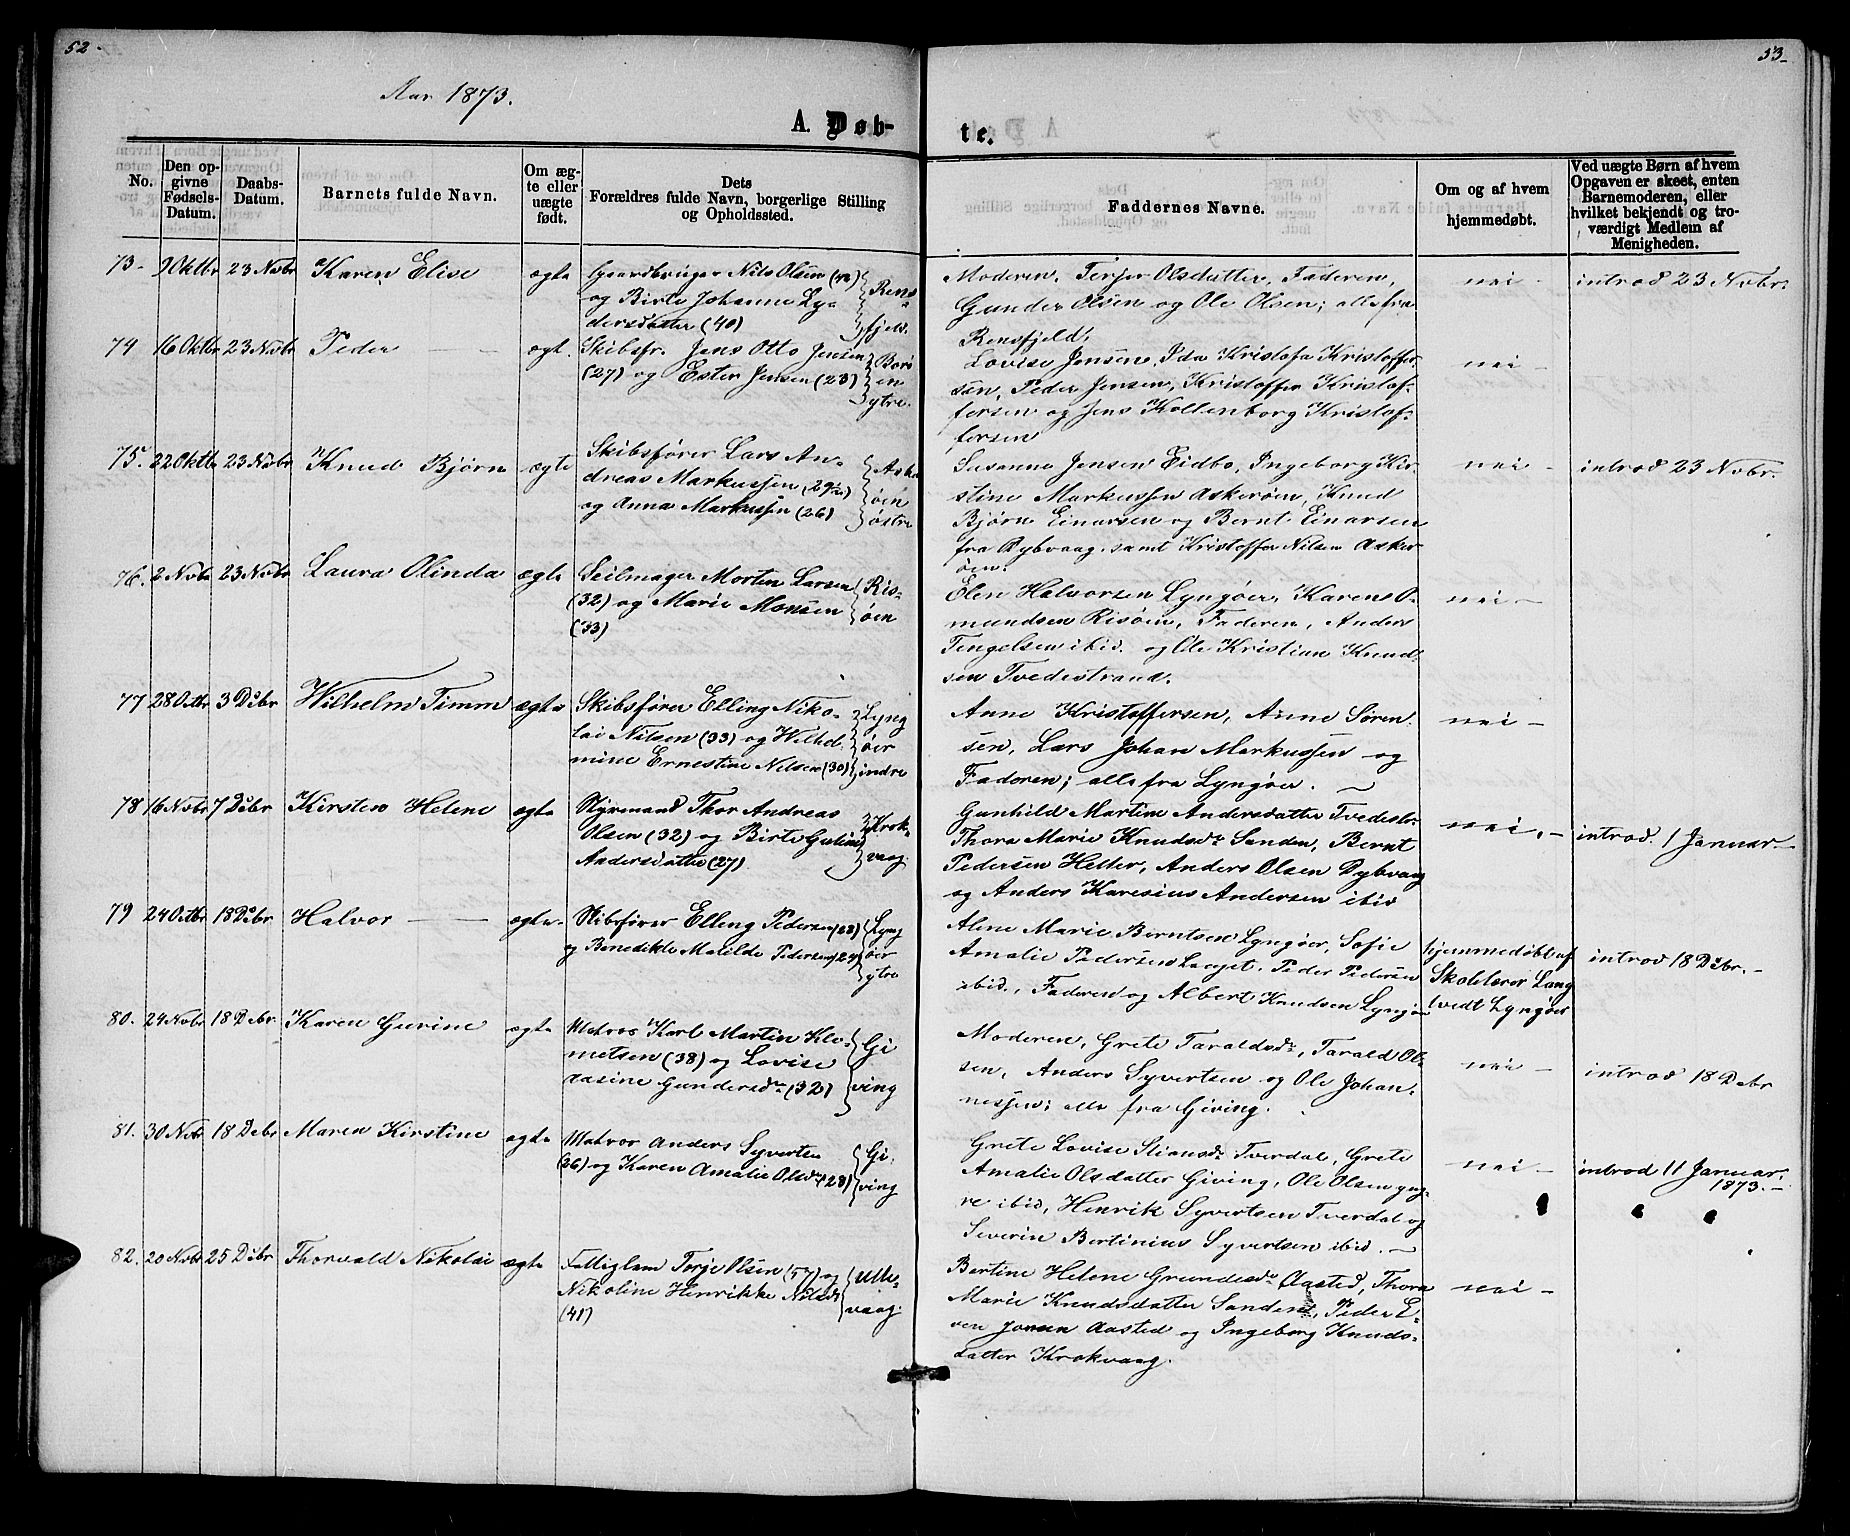 52.
53.
Aar 1873.
A. Døb-
te.
No.
Den op-
givne
Fødsels-
Datum.
Daabs-
Datum.
Barnets fulde Navn.
Om æg-
te eller
uægte
født.
Dets
Forældres fulde Navn, borgerlige Stilling
og Opholdssted.
Faddernes Navne.
Om og af hvem
hjemmedøbt.
Ved uægte Børn af hvem
Opgaven er skeet, enten
Barnemoderen, eller
hvilket bekjendt og tro-
værdigt Medlem af
Menigheden.
73- 9 Oktbr 23 Novbr Karen Elise ægte
Gaardbruger Nils Olsen
og Birte Johanne Ly-
dersdatter (40)
Rens-
fjeld.
Moderen, Terjer Olsdatter, Faderen,
Gunder Olsen og Ole Olsen; alle fra
Rensfjeld.
nei - introd 23 Novbr.
74 16 Oktbr 23 Novbr Peder - - ægt.
Skibsfr. Jens Otto Jensen
(27) og Ester Jensen (23)
Borø
en
ytre.
Lovise Jensen, Ida Kristofa Kristoffer-
sen, Peder Jensen, Kristoffer Kristof-
fersen og Jens Kollenborg Kristof-
fersen
nei -
75. 22 Oktbr 23 Novbr Knud Bjørn ægte
Skibsfører Lars An-
dreas Markussen
og Anna Markussen (26)
Aske
øen
østre
Susanne Jensen Eidbo, Ingeborg Kir-
stine Markussen Askerøen, Knud
Bjørn Einarsen og Bernt Einarsen
fra Dybvaag, samt Kristoffer Nilsen Asker-
øen.
nei - introd 23 Novbr.
76. 2 Novbr 23 Novbr Laura Olinda ægte
Seilmager Morten Larsen
(32) og Marie Monsen
(33)
Ris-
øen
Elen Halvorsen Lyngøer, Karen O-
mundsen Risøen, Faderen, Anders
Tengelsen ibid. og Ole Kristian Knud-
sen Tvedestrand.
nei -
77 28 Octbr 3 Debr Wilhelm Timm ægte
Skibsfører Elling Niko-
lai Nilsen (33) og Wilhel-
mine Ernestine Nilsen (30)
Lyng
øer
indre
Anne Kristoffersen, Anne Søren-
sen, Lars Johan Markussen og
Faderen; alle fra Lyngøer.
nei -
78 16 Novbr 7 Debr Kirsten Helene ægte
Styrmand Thor Andreas
Olsen (32) og Birte Guline
Andersdatter (27)
Krok-
vaag.
Gunhild Martine Andersdatter Tvedestr.
Thora Marie Knudsdr Sanden, Bernt
Pedersen Helter, Anders Olsen Dybvaag
og Anders Karesius Andersen ibid
nei. - introd. 1 Januar -
79 24 Octbr 18 Debr Halvor - - ægte.
Skibsfører Elling Pedersen (28)
og Benedikte Matilde Pedersen (24)
Lyng
øer
ytre
Alene Marie Berntsen Lyngøer, Sofie
Amalie Pedersen, Peder Pedersen
ibid., Faderen og Albert Knudsen Lyngør
hjemmedøbt af
Skolelærer Lang
tvedt Lyngøer
introd 18 Debr. -
80. 24 Novbr 18 Debr. Karen Gurine ægte
Matros Karl Martin Kle-
metsen (38) og Lovise
Gundersdr (32)
Gi
ving
Moderen, Grete Taraldsdr, Tarald Ol-
sen, Anders Syvertsen og Ole Johan-
nessen; alle fra Giving.
nei - introd 18 Debr
81. 30 Novbr 18 Debr Maren Kirstine ægte
Matros Anders Syvertsen
(26) og Karen Amalie Olsdr (28)
Gi-
ving
Grete Lovise Stiansdr Tverdal, Grete
Amalie Olsdatter Giving, Ole Olsen yng-
re ibid, Henrik Syvertsen Tverdal og
Severin Bertinius Syvertsen ibid. -
nei - introd 11 Januar
1873. -
82. 20 Novbr 25 Debr Thorvald Nikolai ægte
Fattiglem Torje Olsen (57) og
Nikoline Henrikke Nilsdr
(41)
Ulle-
vaag.
Bertine Helene Grundesdr Aasted, Thora
Marie Knudsdatter Sanden, Peder E-
ven Jonsen Aasted og Ingeborg Knuds-
datter Krokvaag.
nei -